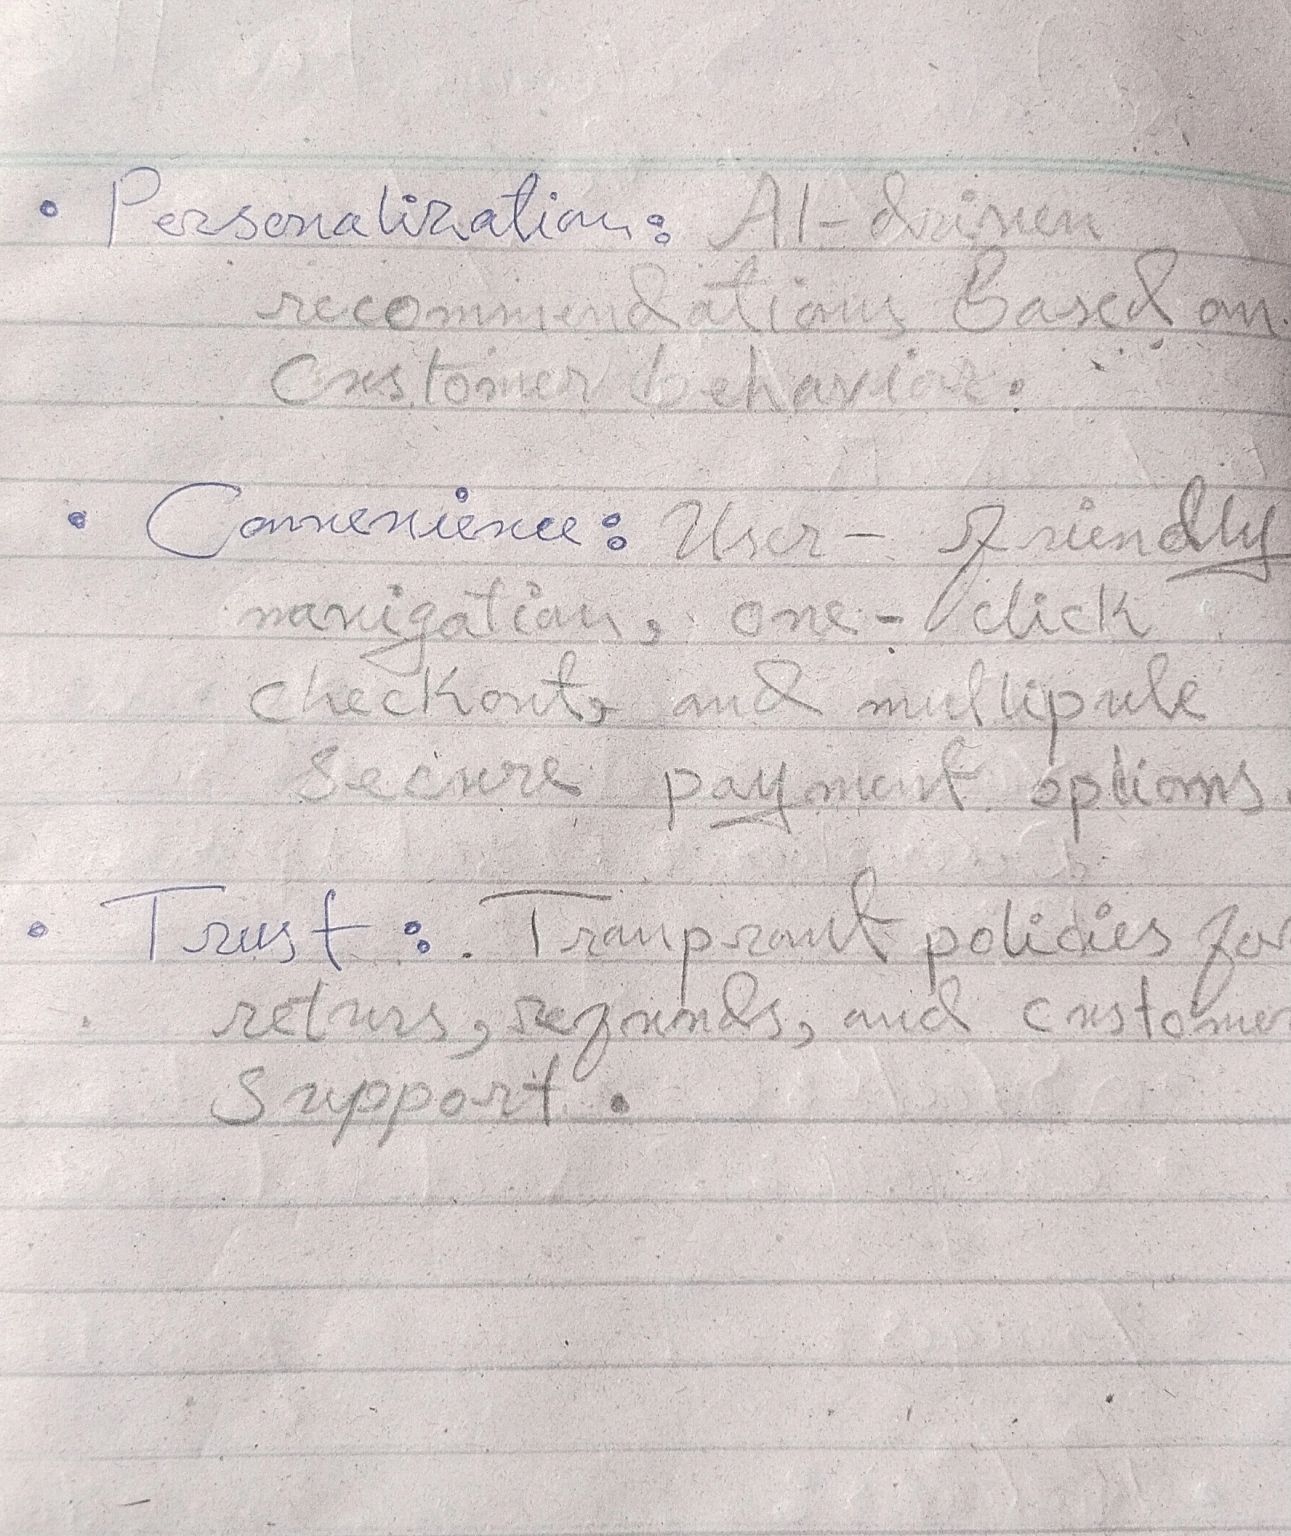 • Personalization: AI-driven
recommendations Based on
Customer behavior.
• Convenience: User- friendly
navigation, one-click
checkout, and multipule
Secure payment options.
• Trust: Tranprant policies for
returs, refunds, and customer
Support.